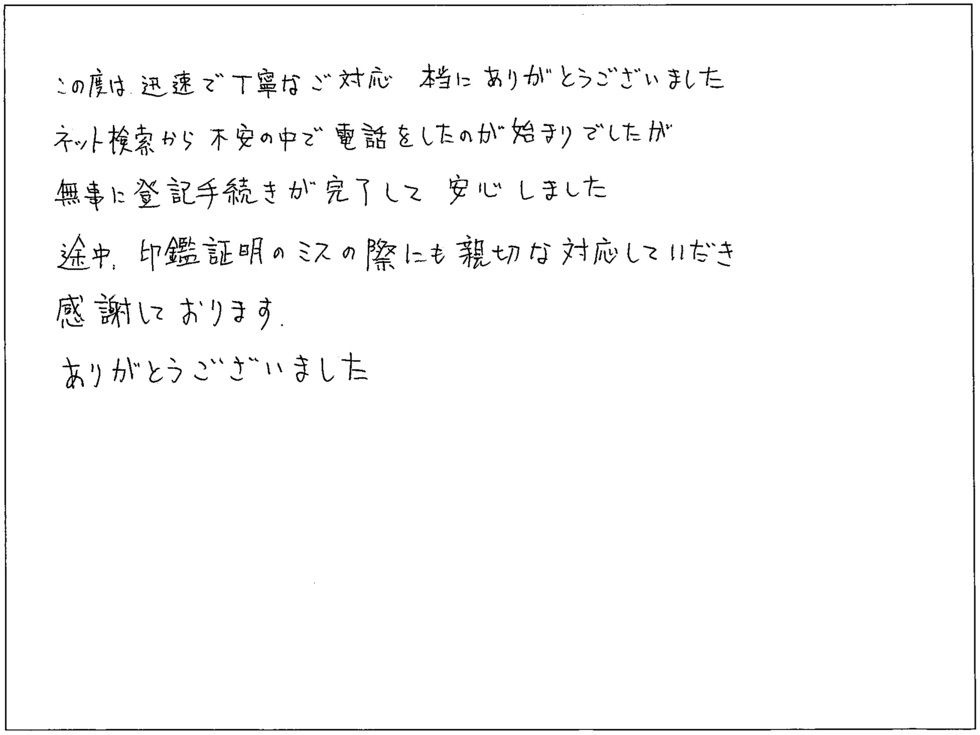 この度は、迅速で丁寧なご対応　本当にありがとうございました
ネット検索から不安の中で電話をしたのが始まりでしたが
無事に登記手続きが完了して　安心しました
途中、印鑑証明のミスの際にも親切な対応していだき
感謝しております。
ありがとうございました